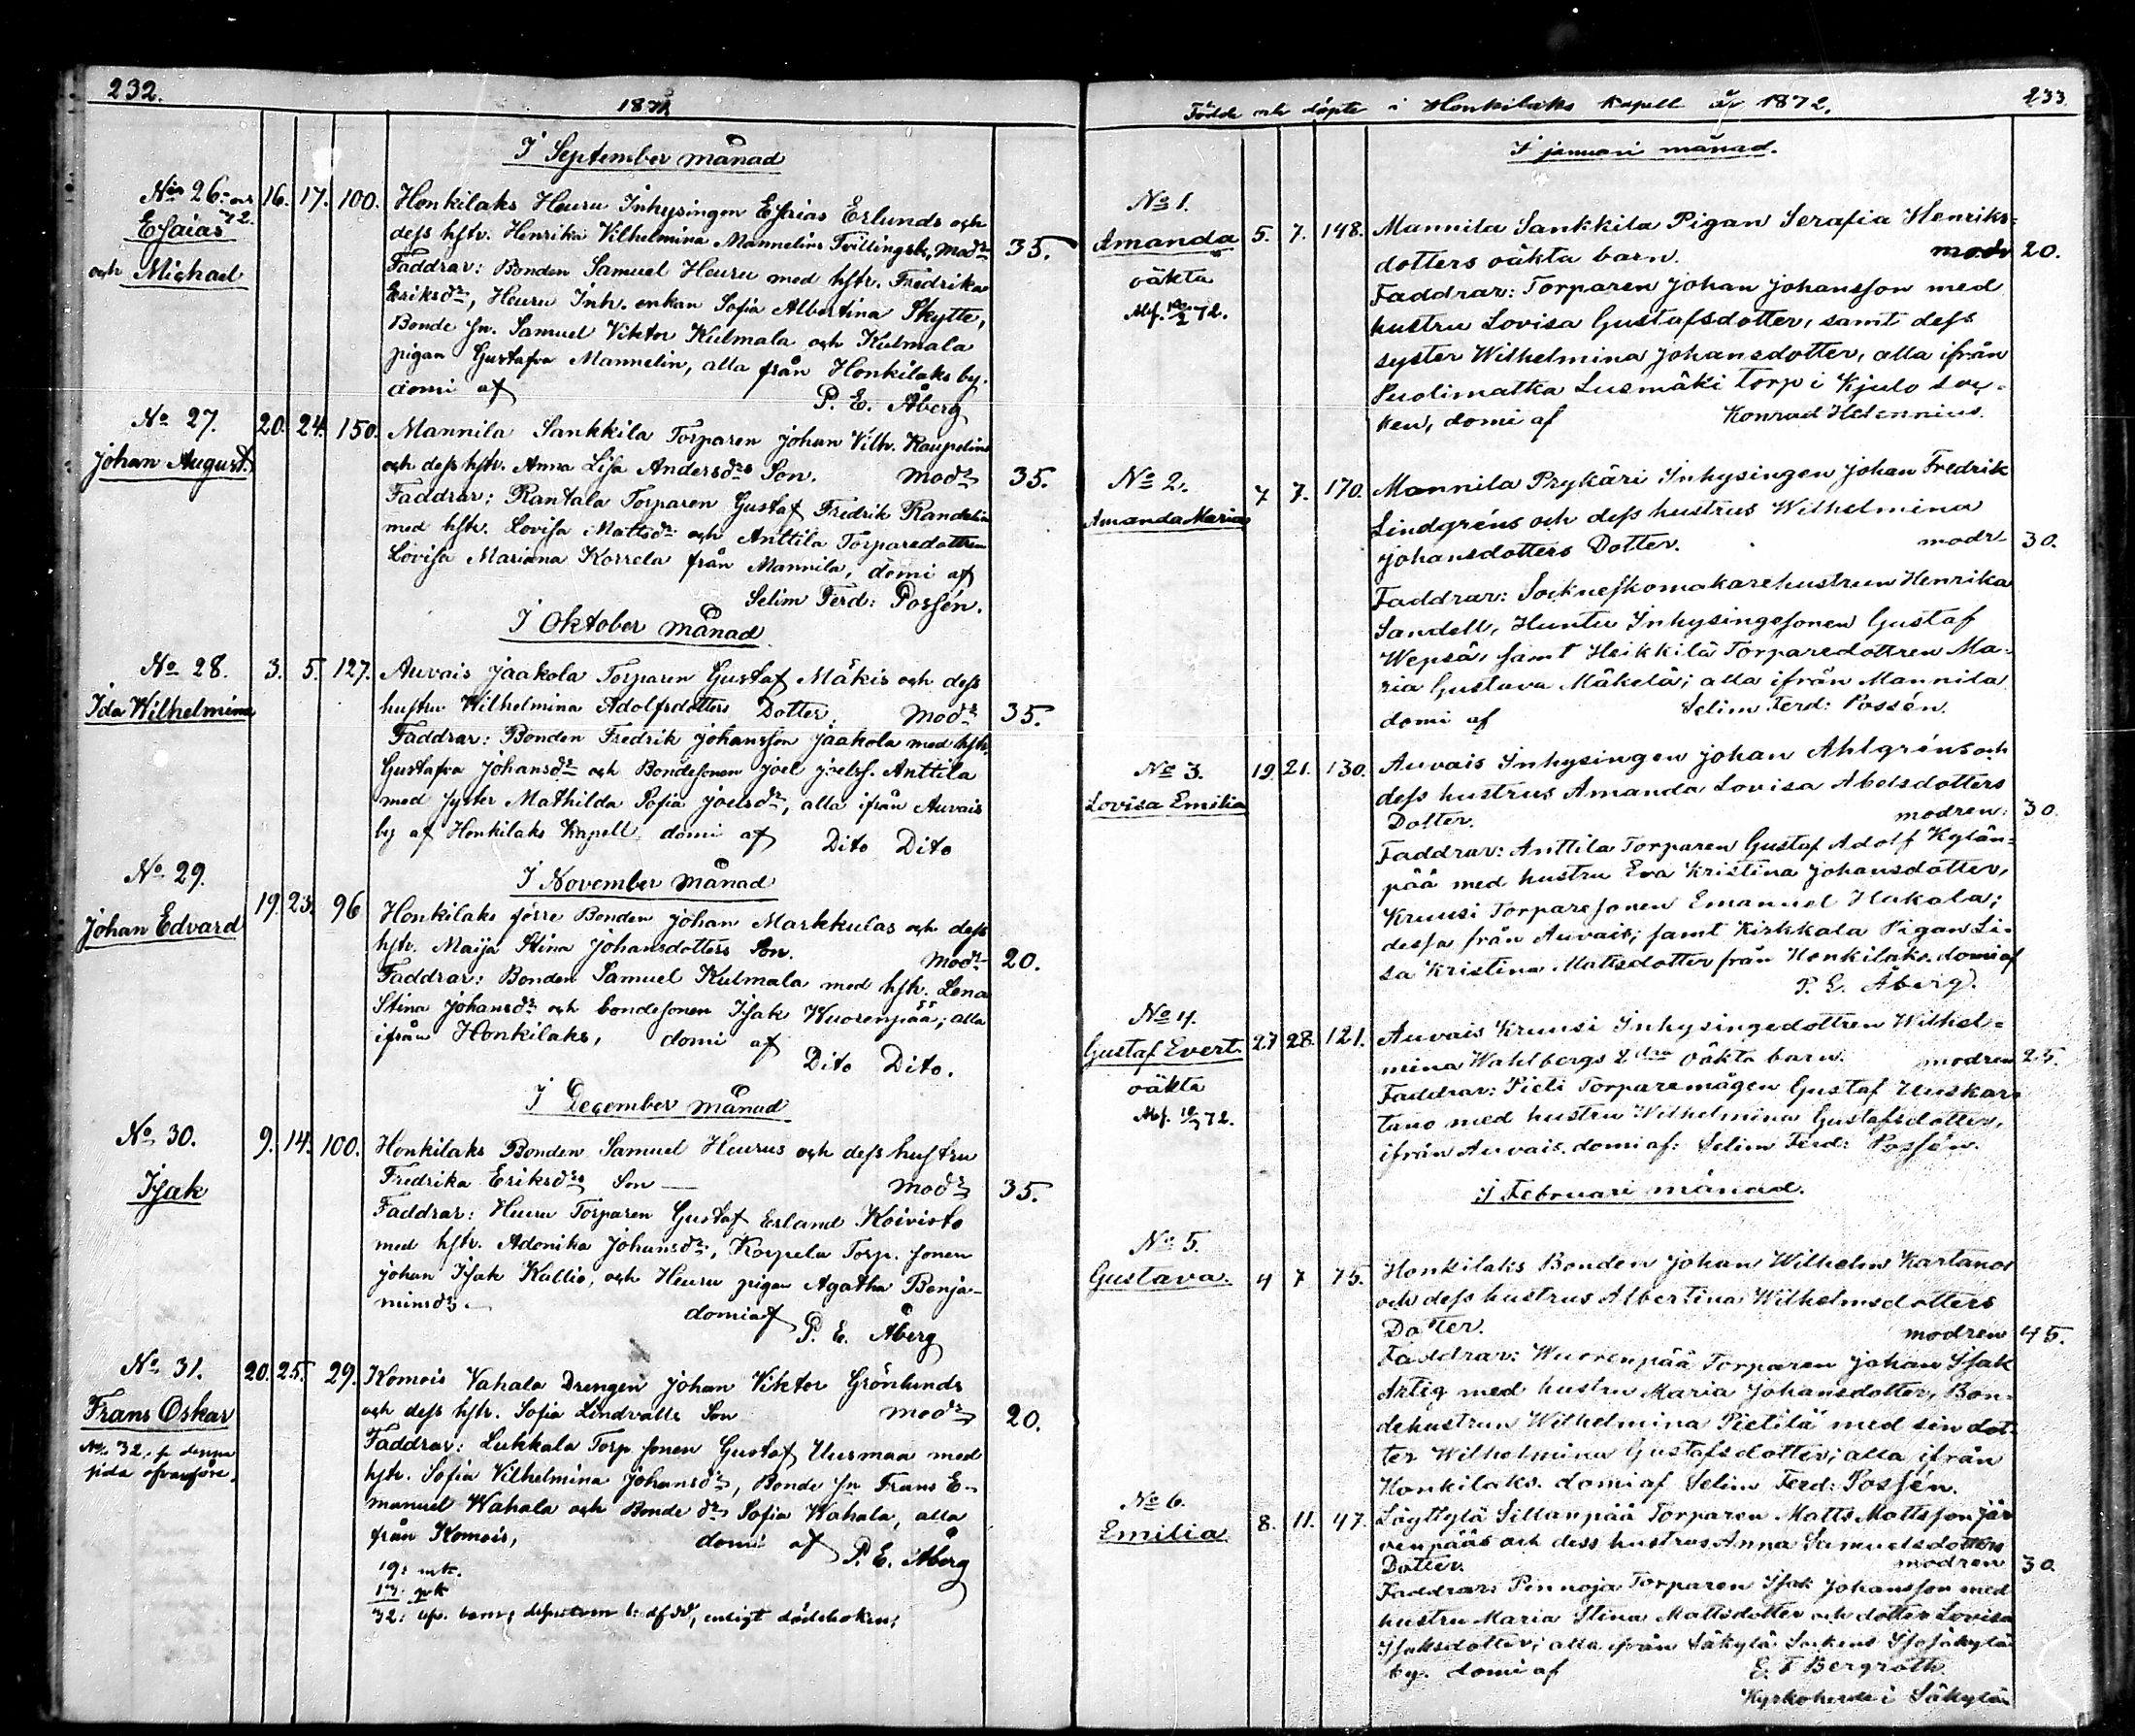 232.
1871.
I September månad
No 26. och 32.
Esaias
och Michael
16. 17. 100. Honkilaks Heuru Inhysingen Esaias Erlunds och
dess hstr. Henrika Vilhelmina Mannelins Tvillingsb, modr 35.
Faddrar: Bonden Samuel Heuru med hstr. Fredrika
Eriksdr, Heuru Inh. enkan Sofia Albertina Skytte,
Bonde sn. Samuel Viktor Kulmala och Kulmala
pigan Gustafva Mannelin, alla från Honkilaks by.
domi af P. E. Åberg
No 27. 20. 24. 150. Mannila Sankkila Torparen Johan Vilh. Kaupelins
Johan August.
och dess hstr. Anna Lisa Andersdrs Son. modr 35.
Faddrar: Rantala Torparen Gustaf Fredrik Randelin
med hstr. Lovisa Mattsdr och Anttila Torparedottren
Lovisa Mariana Korrela från Mannila, domi af
Selim Ferd: Possén.
I Oktober månad
No 28. 3. 5. 127. Auvais Jaakola Torparen Gustaf Mäkis och dess
Ida Wilhelmina
hustru Wilhelmina Adolfsdotters Dotter. modr 35.
Faddrar: Bonden Fredrik Johansson Jaakola med hstr.
Gustafva Johansdr och Bondesonen Joel Joelss. Anttila
med syster Mathilda Sofia Joelsdr, alla ifrån Auvais
by af Honkilaks Kapell domi af Dito Dito
I November månad
No 29.
Johan Edvard
19. 23. 96 Honkilaks förre Bonden Johan Markkulas och dess
hstr. Maija Stina Johansdotters Son. modr 20.
Faddrar: Bonden Samuel Kulmala med hstr. Lena
Stina Johansdr och bondesonen Isak Wuorenpää; alla
ifrån Honkilaks, domi af
Dito Dito.
I December månad
No 30. 9. 14. 100. Honkilaks Bonden Samuel Heurus och dess hustru
Isak
Fredrika Eriksdrs Son modr 35.
Faddrar: Heuru Torparen Gustaf Erland Koivisto
med hstr. Adonika Johansdr, Korpela Torp. sonen
Johan Isak Kallio, och Heuru pigan Agatha Benja-
minsdr. domi af
P. E. Åberg
No 31. 20. 25. 29. Komois Vahala Drengen Johan Viktor Grönlunds
Frans Oskar
och dess hstr. Sofia Lindvalls Son modr 20.
No 32, p. denna
sida ofvanföre.
Faddrar: Lukkala Torp. sonen Gustaf Uusmaa med
hstr. Sofia Vilhelmina Johansdr, Bonde sn Frans E-
manuel Wahala och Bonde dr Sofia Wahala, alla
från Komois, domi af P. E. Åberg
19: mk.
13: qk
32:
233.
Födde och döpte i Honkilaks Kapell år 1872.
I januari månad.
No 1.
Amanda
oäkta
5. 7. 148. Mannila Sankkila Pigan Serafia Henriks-
dotters oäkta barn. modr 20.
Faddrar: Torparen Johan Johansson med
hustru Lovisa Gustafsdotter, samt dess
syster Wilhelmina Johansdotter, alla ifrån
Puolimatka Lusmäki Torp i Kjulo soc-
ken, domi af Konrad Helennius.
No 2.
Amanda Maria
7 7. 170. Mannila Prykäri Inhysingen Johan Fredrik
Lindgréns och dess hustrus Wilhelmina
Johansdotters Dotter. modr 30.
Faddrar: Sockneskomakarehustrun Henrika
Sandell, Huntu Inhysingesonen Gustaf
Wepsä, samt Heikkilä Torparedottren Ma-
ria Gustava Mäkelä; alla ifrån Mannila
domi af Selim Ferd: Possén.
No 3.
Lovisa Emilia
19. 21. 130. Auvais Inhysingen Johan Ahlgréns och
dess hustrus Amanda Lovisa Abelsdotters
Dotter. modren: 30.
Faddrar: Anttila Torparen Gustaf Adolf Kylän-
pää med hustru Eva Kristina Johansdotter,
Kruusi Torparesonen Emanuel Hakala;
dessa från Auvais; samt Kirkkala Pigan Li-
sa Kristina Mattsdotter från Honkilaks. domi af
P. E. Åberg.
No 4.
Gustaf Evert.
oäkta
27 28. 121. Auvais Kruusi Inhysingedottren Wilhel-
mina Wahlbergs 2dra oäkta barn. modren 25.
Faddrar: Pieti Torparemågen Gustaf Uuskar-
tano med hustru Wilhelmina Gustafsdotter,
ifrån Auvais. domi af: Selim Ferd: Possén.
I Februari månad.
No 5.
Gustava.
4 7 75. Honkilaks Bonden Johan Wilhelm Kartanos
och dess hustrus Albertina Wilhelmsdotters
Dotter. modren 45.
Faddrar: Wuorenpää Torparen Johan Isak
Artig med hustru Maria Johansdotter, Bon-
dehustrun Wilhelmina Pietilä med sin dot-
ter Wilhelmina Gustafsdotter; alla ifrån
Honkilaks. domi af Selim Ferd: Possén.
No 6.
Emilia
8. 11. 47. Löytylä Sillanpää Torparen Matts Mattsson Jär-
venpääs och dess hustrus Anna Samuelsdotters
Dotter. modren 30.
Faddrar: Pennoja Torparen Isak Johansson med
hustru Maria Stina Mattsdotter och dotter Lovisa
Isaksdotter; alla ifrån Säkylä Sockens Isosäkylä
by. domi af E. F Bergroth
Kyrkoherde i Säkylä